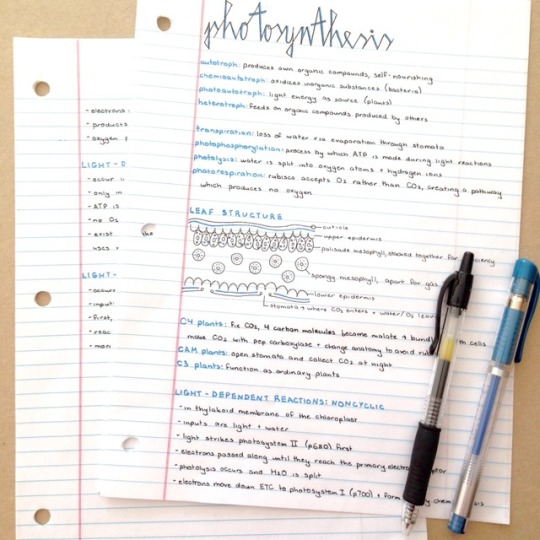 photosynthesis
autotroph: produces own organic compounds, self-nourishing
chemoautotroph: oxidizes inorganic substances (bacteria)
photoautotroph: light energy as source (plants)
heterotroph: feeds on organic compounds produced by others
transpiration: loss of water via evaporation through stomata
photophosphorylation: process by which ATP is made during light reactions
photolysis: water is split into oxygen atoms + hydrogen ions
photorespiration: rubisco accepts O2 rather than CO2, creating a pathway
which produces no oxygen
LEAF STRUCTURE
cuticle
upper epidermis
palisade mesophyll, stacked together for
spongy mesophyll, apart for gas
lower epidermis
stomata → where CO2 enters + water/O2
C4 plants: fix CO2, 4 carbon molecules become malate →
CO2 with pep carboxylase + change anatomy to avoid
CAM plants: open stomata and collect CO2 at night
C3 plants: function as ordinary plants
LIGHT-DEPENDENT REACTIONS: NONCYCLIC
- in thylakoid membrane of the chloroplast
- inputs are light + water
- light strikes photosystem II (p680) first
- electrons passed along until they reach the primary
- photolysis occurs and H2O is split
- electrons move down ETC to photosystem I (p700) +
- electrons
- products
- oxygen
LIGHT-
- occur
- only in
- ATP is
- no O2
- exist the
uses
LIGHT-
- occurs
- input
- first,